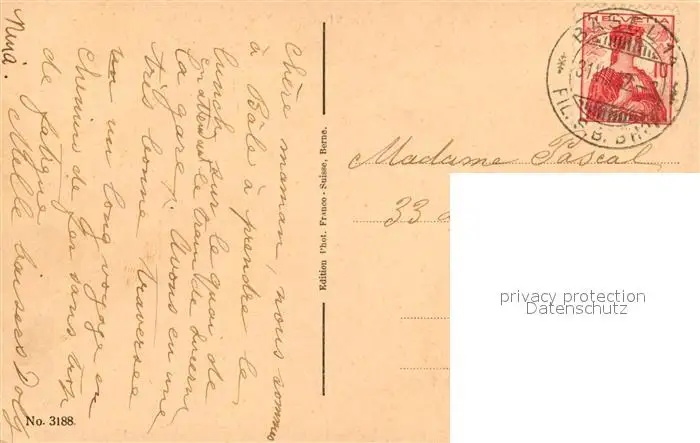 Chère maman, nous sommes
à Bâle à prendre le
lunch sur le quai de
en attendant le train de Lucerne
la gare; avons eu une
très bonne traversée
un long voyage en
chemin de fer sans trop
de fatigue
Mille baisers
Nina.
No. 3188
Edition Phot. Franco-Suisse, Berne.
HELVETIA
10
BASEL 17
31
FIL. S.B.BHF.
Madame Pascal
33
privacy protection
Datenschutz